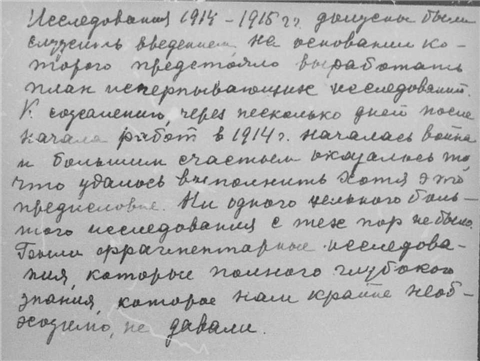 Исследования 1914-1915 гг. должны были
служить введением на основании ко-
торого предстояло выработать
план исчерпывающих исследований.
К сожалению, через несколько дней после
начала работ в 1914 г. началась война
и большим счастьем оказалось то
что удалось выполнить хотя это
предисловие. Ни одного цельного боль-
шого исследования с тех пор не было.
Были фрагментарные исследова-
ния, которые полного глубокого
знания, которое нам крайне необ-
ходимо, не давали.